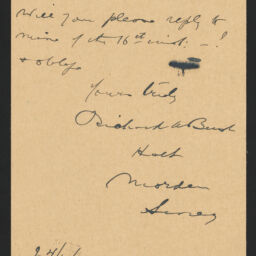 Will you please reply to
mine of the 16th inst: - !
& oblige
Yours truly
Richard W Bush
Holt
Morden
Surrey